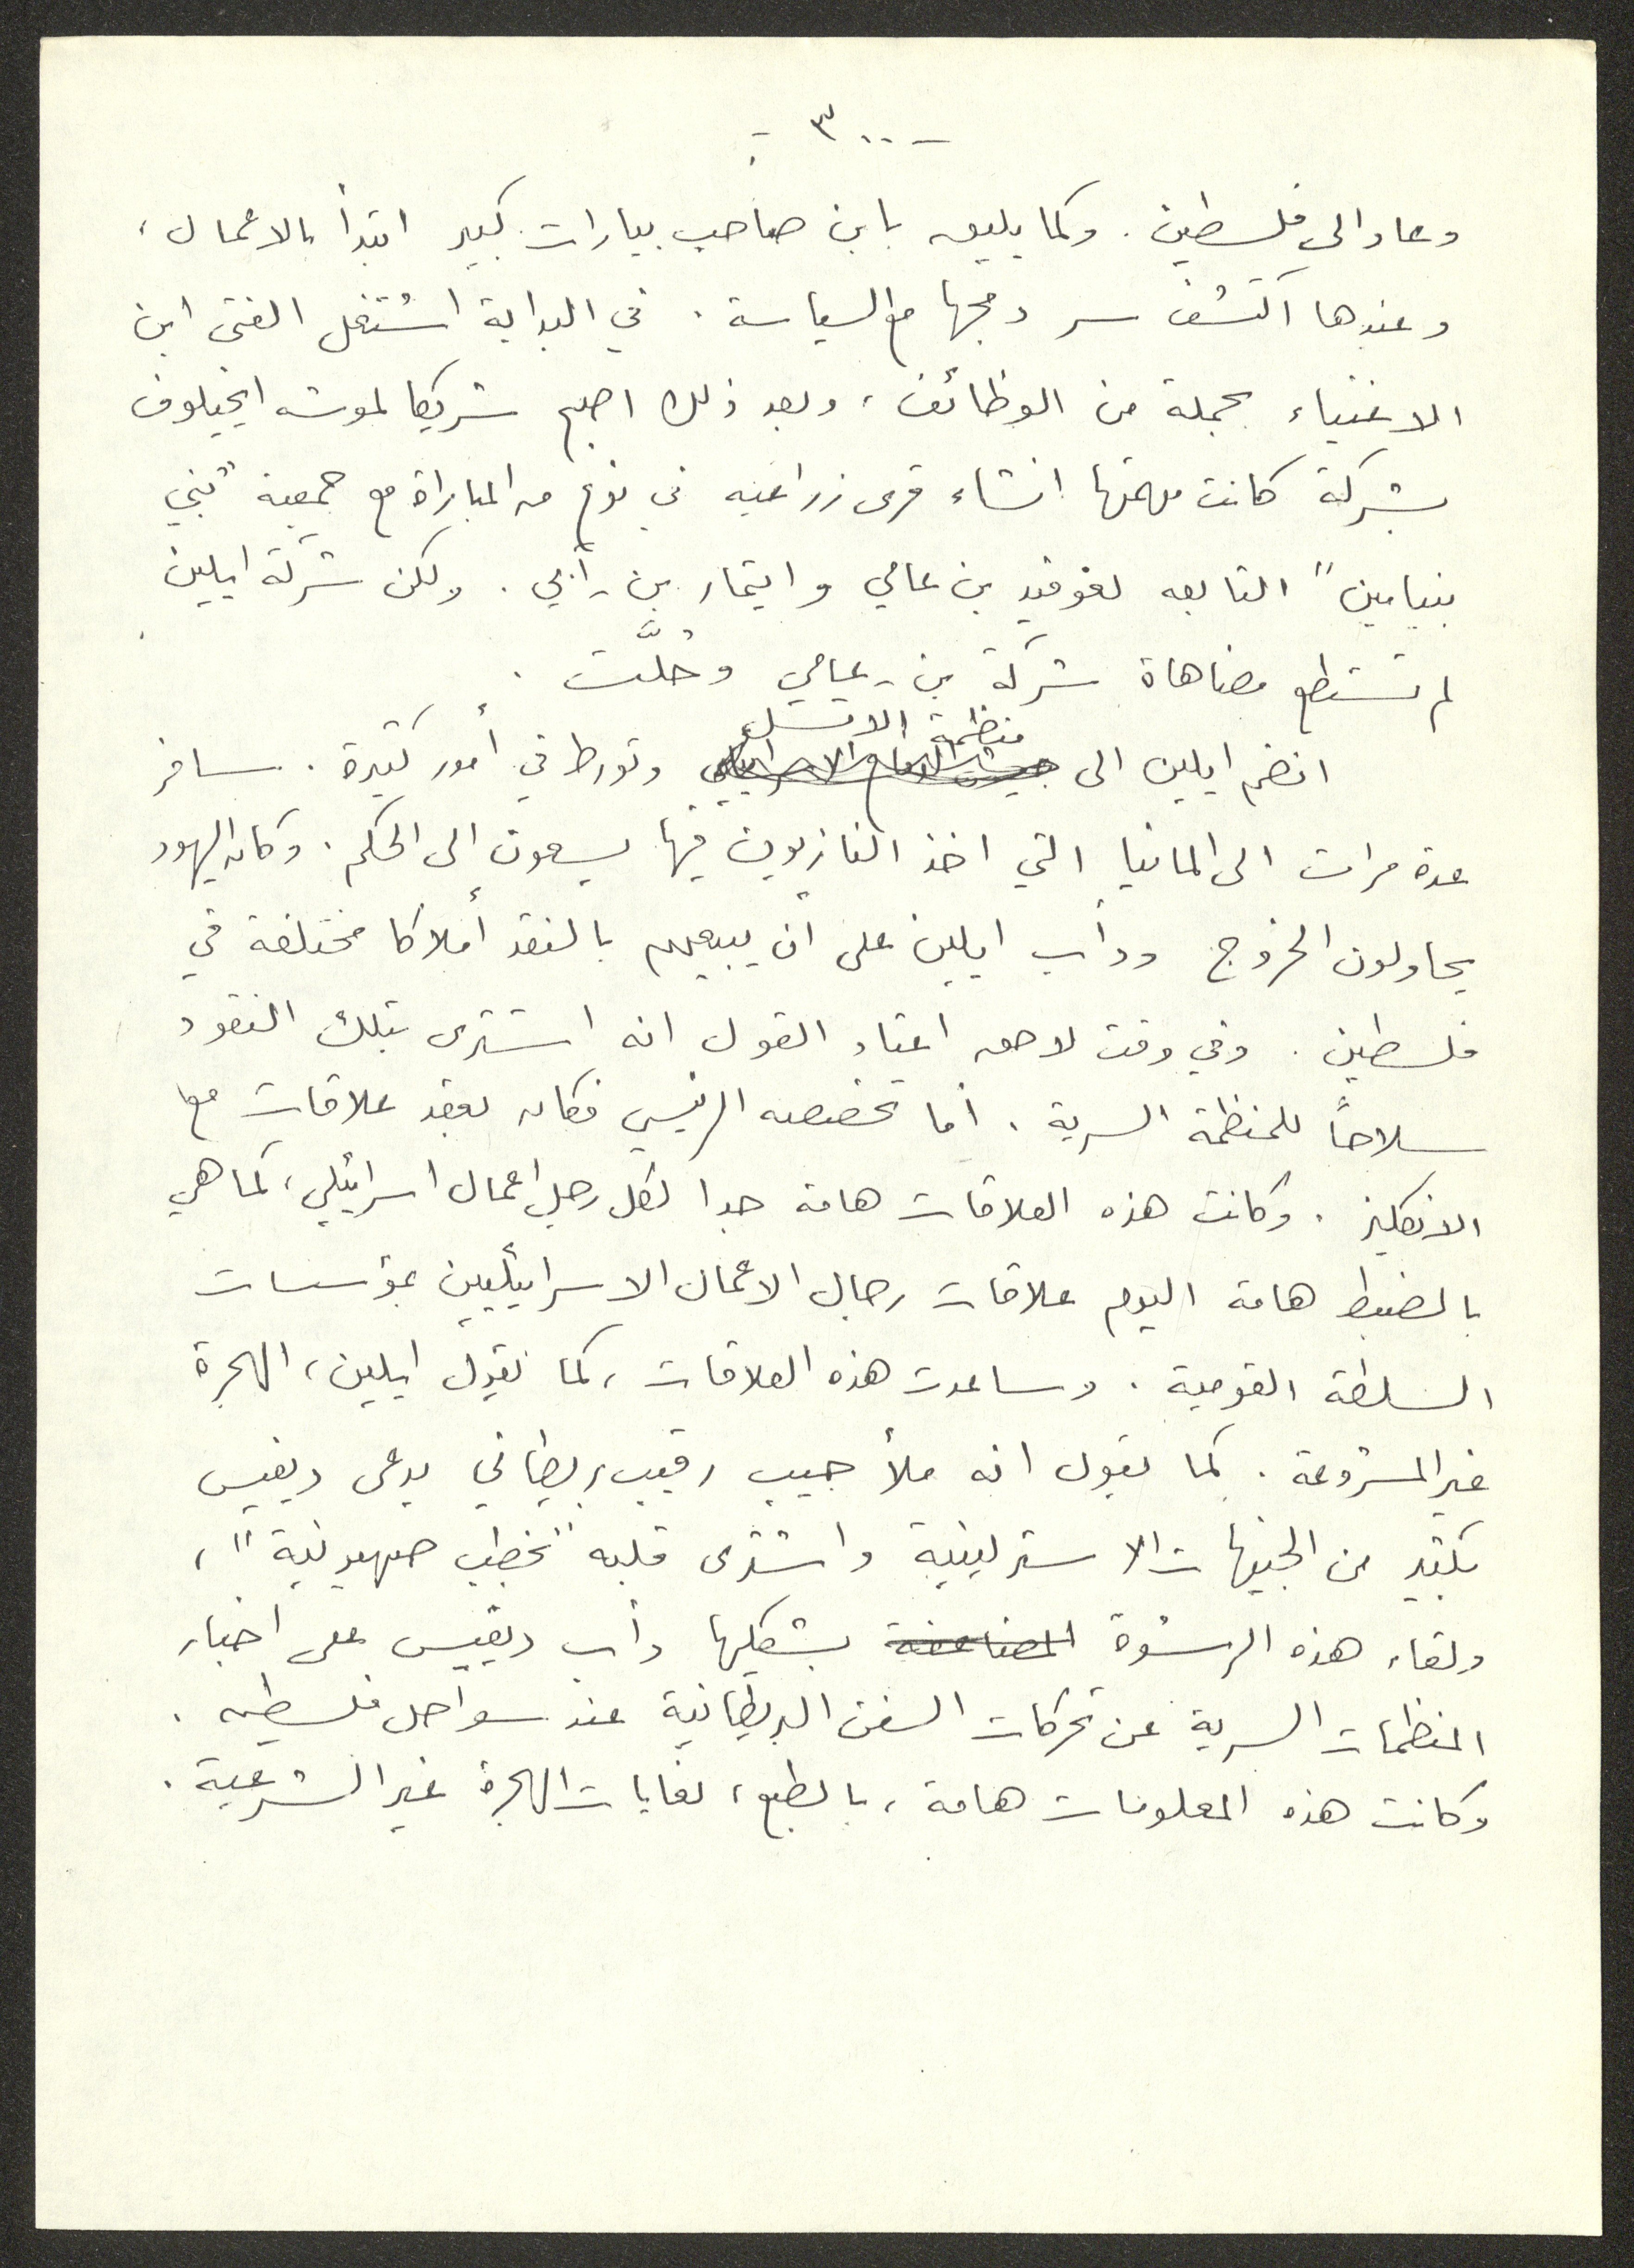 - ٣٠٠ -
وعاد الى فلسطين. وكما يليق بابن صاحب بيارات كبير ابتدأ بالاعمال،
وعندها اكتشف سر دمجها مع السياسة. في البداية اشتغل الفتى ابن
الاغنياء بجملة من الوظائف، وبعد ذلك اصبح شريكا لموشه ايخيلوف
بشركة كانت مهمتها انشاء قرى زراعيه في نوع من المباراة مع جمعية "بني
بنيامين" التابعه لعوفيد بن عامي وايتمار بن-آبي. ولكن شركة ايلين
لم تستطع مضاهاة شركة بن-عامي وحُلَّت.
انضم ايلين الى جيش الدفاع الاسرائيلي منظمة الاتسل وتورط في أمور كثيرة. سافر
عدة مرات الى المانيا التي اخذ النازيون فيها يسعون الى الحكم. وكان اليهود
يحاولون الخروج ودأب ايلين على أن يبيعهم بالنقد أملاكا مختلفة في
فلسطين. وفي وقت لاحق اعتاد القول انه اشترى بتلك النقود
سلاحاً للمنظمة السرية. أما تخصصه الرئيسي فكان بعقد علاقات مع
الانكليز. وكانت هذه العلاقات هامة جدا لكل رجل اعمال اسرائيلي، كما هي
بالضبط هامة اليوم علاقات رجال الاعمال الاسرائيليين بمؤسسات
السلطة القومية. وساعدت هذه العلاقات، كما يقول ايلين، الهجرة
غير المشروعة. كما يقول انه ملأ جيب رقيب بريطاني يدعى ديفيس
بكثير من الجنيهات الاسترلينية واشترى قلبه "بخطب صهيونية"،
ولقاء هذه الرشوة المضاعفة بشكليها دأب ديفيس على اخبار
المنظمات السرية عن تحركات السفن البريطانية عند سواحل فلسطين.
وكانت هذه المعلومات هامة، بالطبع، لغايات الهجرة غير الشرعية.